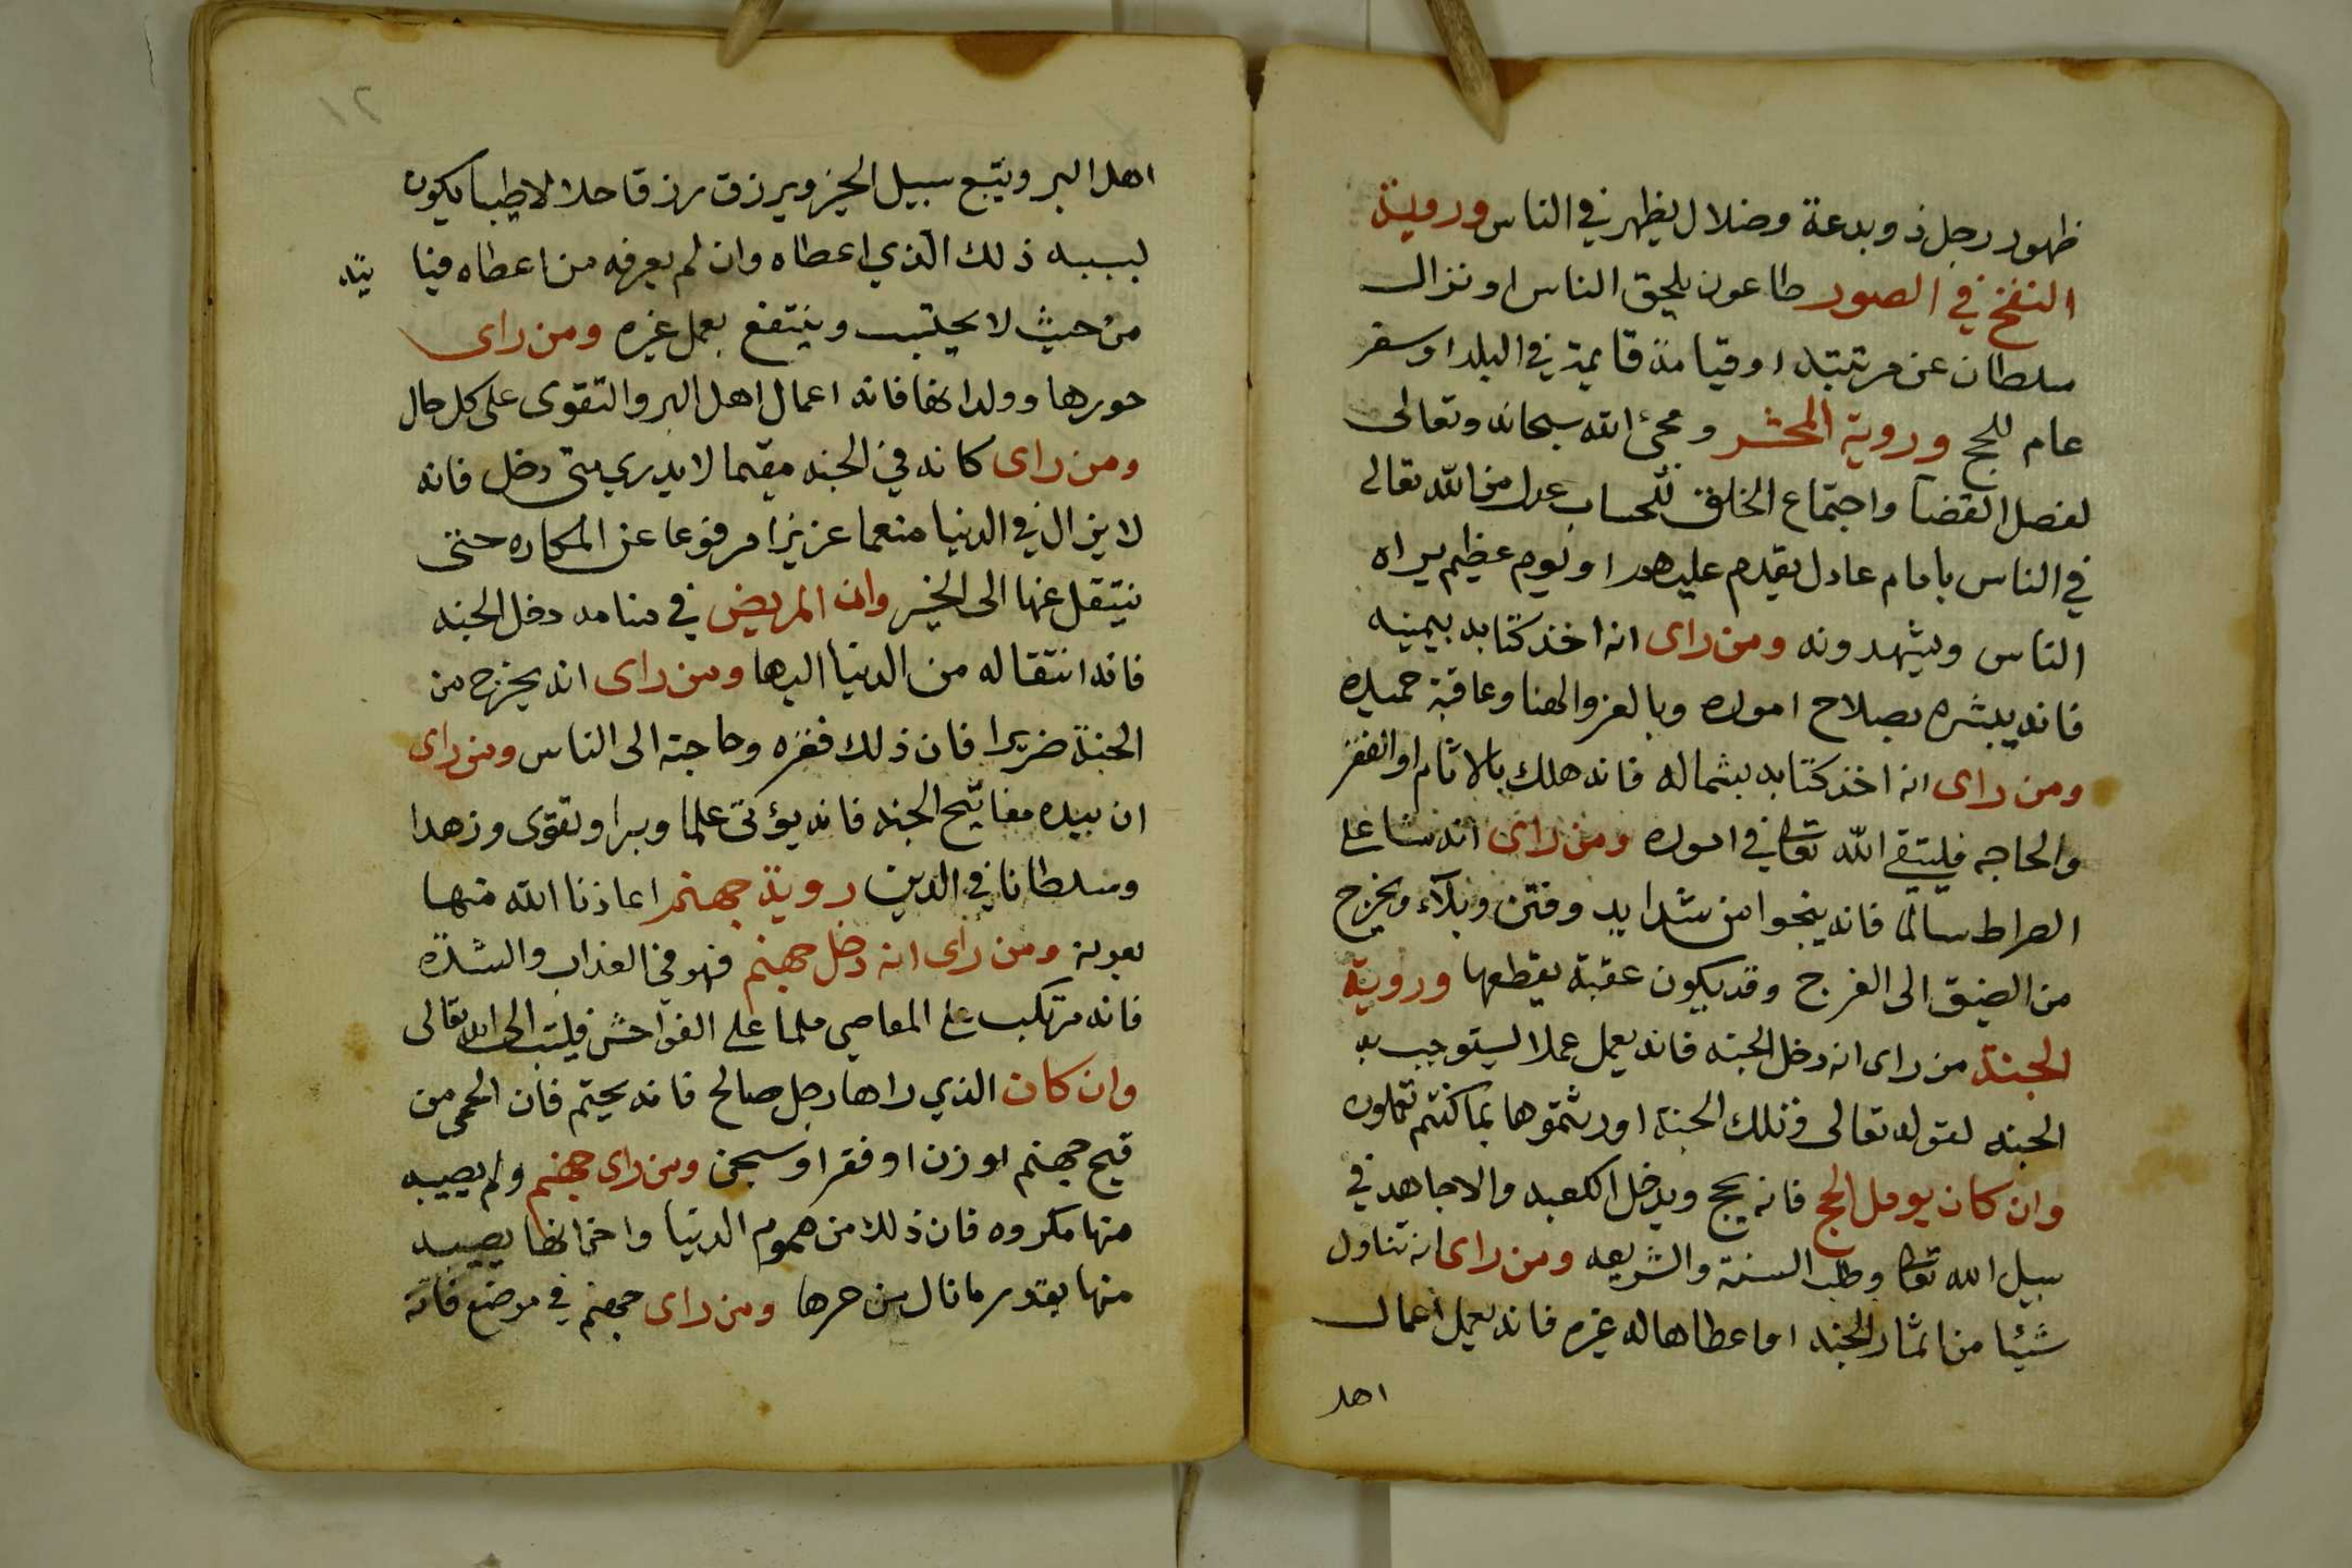 ظهور رجل ذو بدعة وضلال يظهر في الناس وروية
النفخ في الصور طاعون يلحق الناس او نزال
سلطان عن مرتبته او قيامة قايمة في البلد او سفر
عام للحج وروية المحشر ومجئ الله سبحانه وتعالى
لفصل القضا واجتماع الخلق للحساب عدل من الله تعالى
في الناس بامام عادل يقدم عليهم او يوم عظيم يراه
الناس ويشهدونه ومن راى انه اخذ كتابه بيمينه
فانه يبشره بصلاح اموره وبالعز والهنا وعاقبة حميده
ومن راى انه اخذ كتابه بشماله فانه هلك بالاثام او الفقر
والحاجه فليتقي الله تعالى في اموره ومن راى انه على
الصراط سالما فانه ينجوا من شدايد وفتن وبلاء ويخرج
من الضيق الى الفرج وقد يكون عقبة يقطعها وروية
الجنة من راى انه دخل الجنه فانه يعمل عملا يستوجب به
الجنه لقوله تعالى وتلك الجنة اورثتموها بما كنتم تعملون
وان كان يومل الحج فانه يحج ويدخل الكعبه والا جاهد في
سبيل الله تعالى وطلب السنة والشريعه ومن راى انه تناول
شيئا من اثمار الجنه او اعطاها له غيره فانه يعمل اعمال
اهل
١٢
اهل البر ويتبع سبيل الخير ويرزق رزقا حلالا طيبا يكون
لسببه ذلك الذي اعطاه وان لم يعرفه من اعطاه فيا تيه
من حيث لا يحتسب وينتفع بعمل غيره ومن راى
حورها وولدانها فانه اعمال اهل البر والتقوى على كل حال
ومن راى كانه في الجنه مقيما لا يدري متى دخل فانه
لا يزال في الدنيا منعما عزيزا مرفوعا عن المكاره حتى
ينتقل عنها الى الخير وان المريض في منامه دخل الجنه
فانه انتقاله من الدنيا اليها ومن راى انه يخرج من
الجنة ضريرا فان ذلك فقره وحاجته الى الناس ومن راى
ان بيده مفاتيح الجنه فانه يؤتى علما وبرا وتقوى وزهدا
وسلطانا في الدين روية جهنم اعاذنا الله منها
ومن راى انه دخل جهنم فهو في العذاب والشدة
فانه مرتكب على المعاصي ملما على الفواحش فليتب الى الله تعالى
وان كان الذي راها رجل صالح فانه يحتم فان الحمى من
قيح جهنم او زنا او فقر او سجن ومن راى جهنم ولم يصيبه
منها مكروه فان ذلك من هموم الدنيا واحزانها يصيبه
منها بقدر ما نال من حرها ومن راى جهنم في موضع فانه